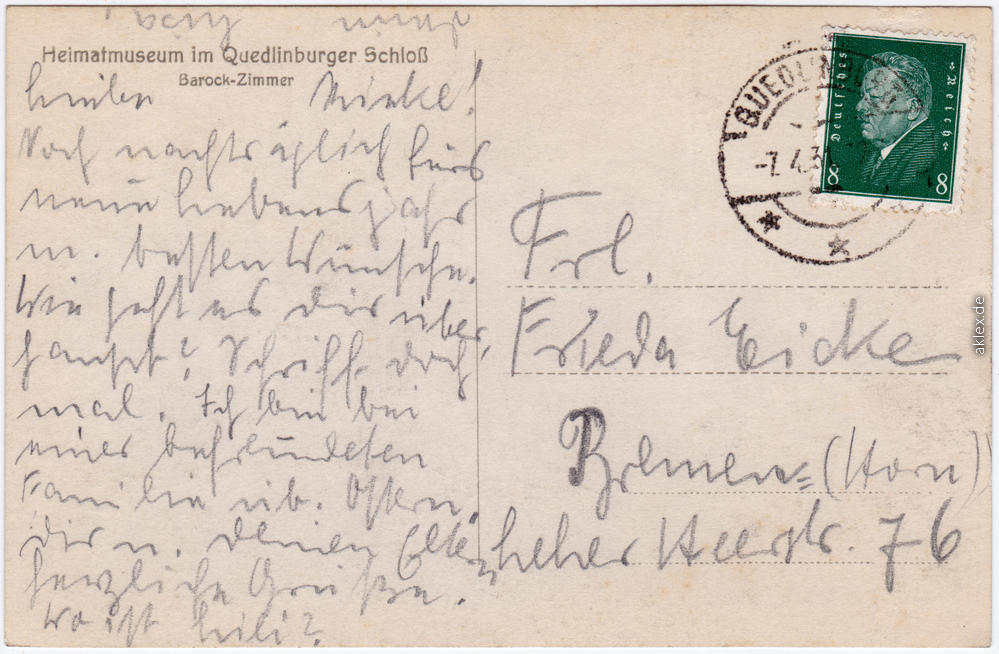 Heimatmuseum im Quedlinburger Schloß
Barock-Zimmer
Noch nachträglich fürs
neue Lebensjahr
m. besten Wünsche.
Wie geht es dir über,
haupt? Schrift doch
mal. Ich bin bei
einer befreundeten
Familie üb. Ostern.
Dir u. deinen Eltern
herzliche Grüße.
Wo ist Lili?
QUEDLINBURG
-7.4.31
Deutsches Reich
8 8
Frl.
Frieda Eicke
Bremen=(Horn)
Heerstr. 76
aklex.de